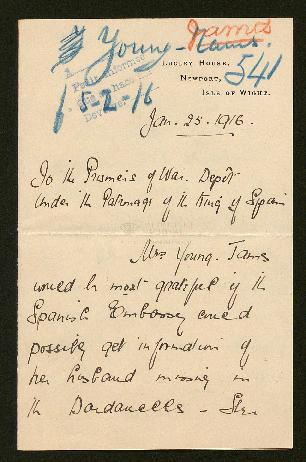 Young-James.
James
541
5-2-16
LUGLEY HOUSE,
NEWPORT,
ISLE OF WIGHT.
Jan. 25. 1916.
To the Prisoners of War. Depôt
Under the Patronage of the King of Spain
Mrs Young. James
would be most grateful if the
Spanish Embassy could
possibly get information of
her husband missing in
the Dardanelles - She